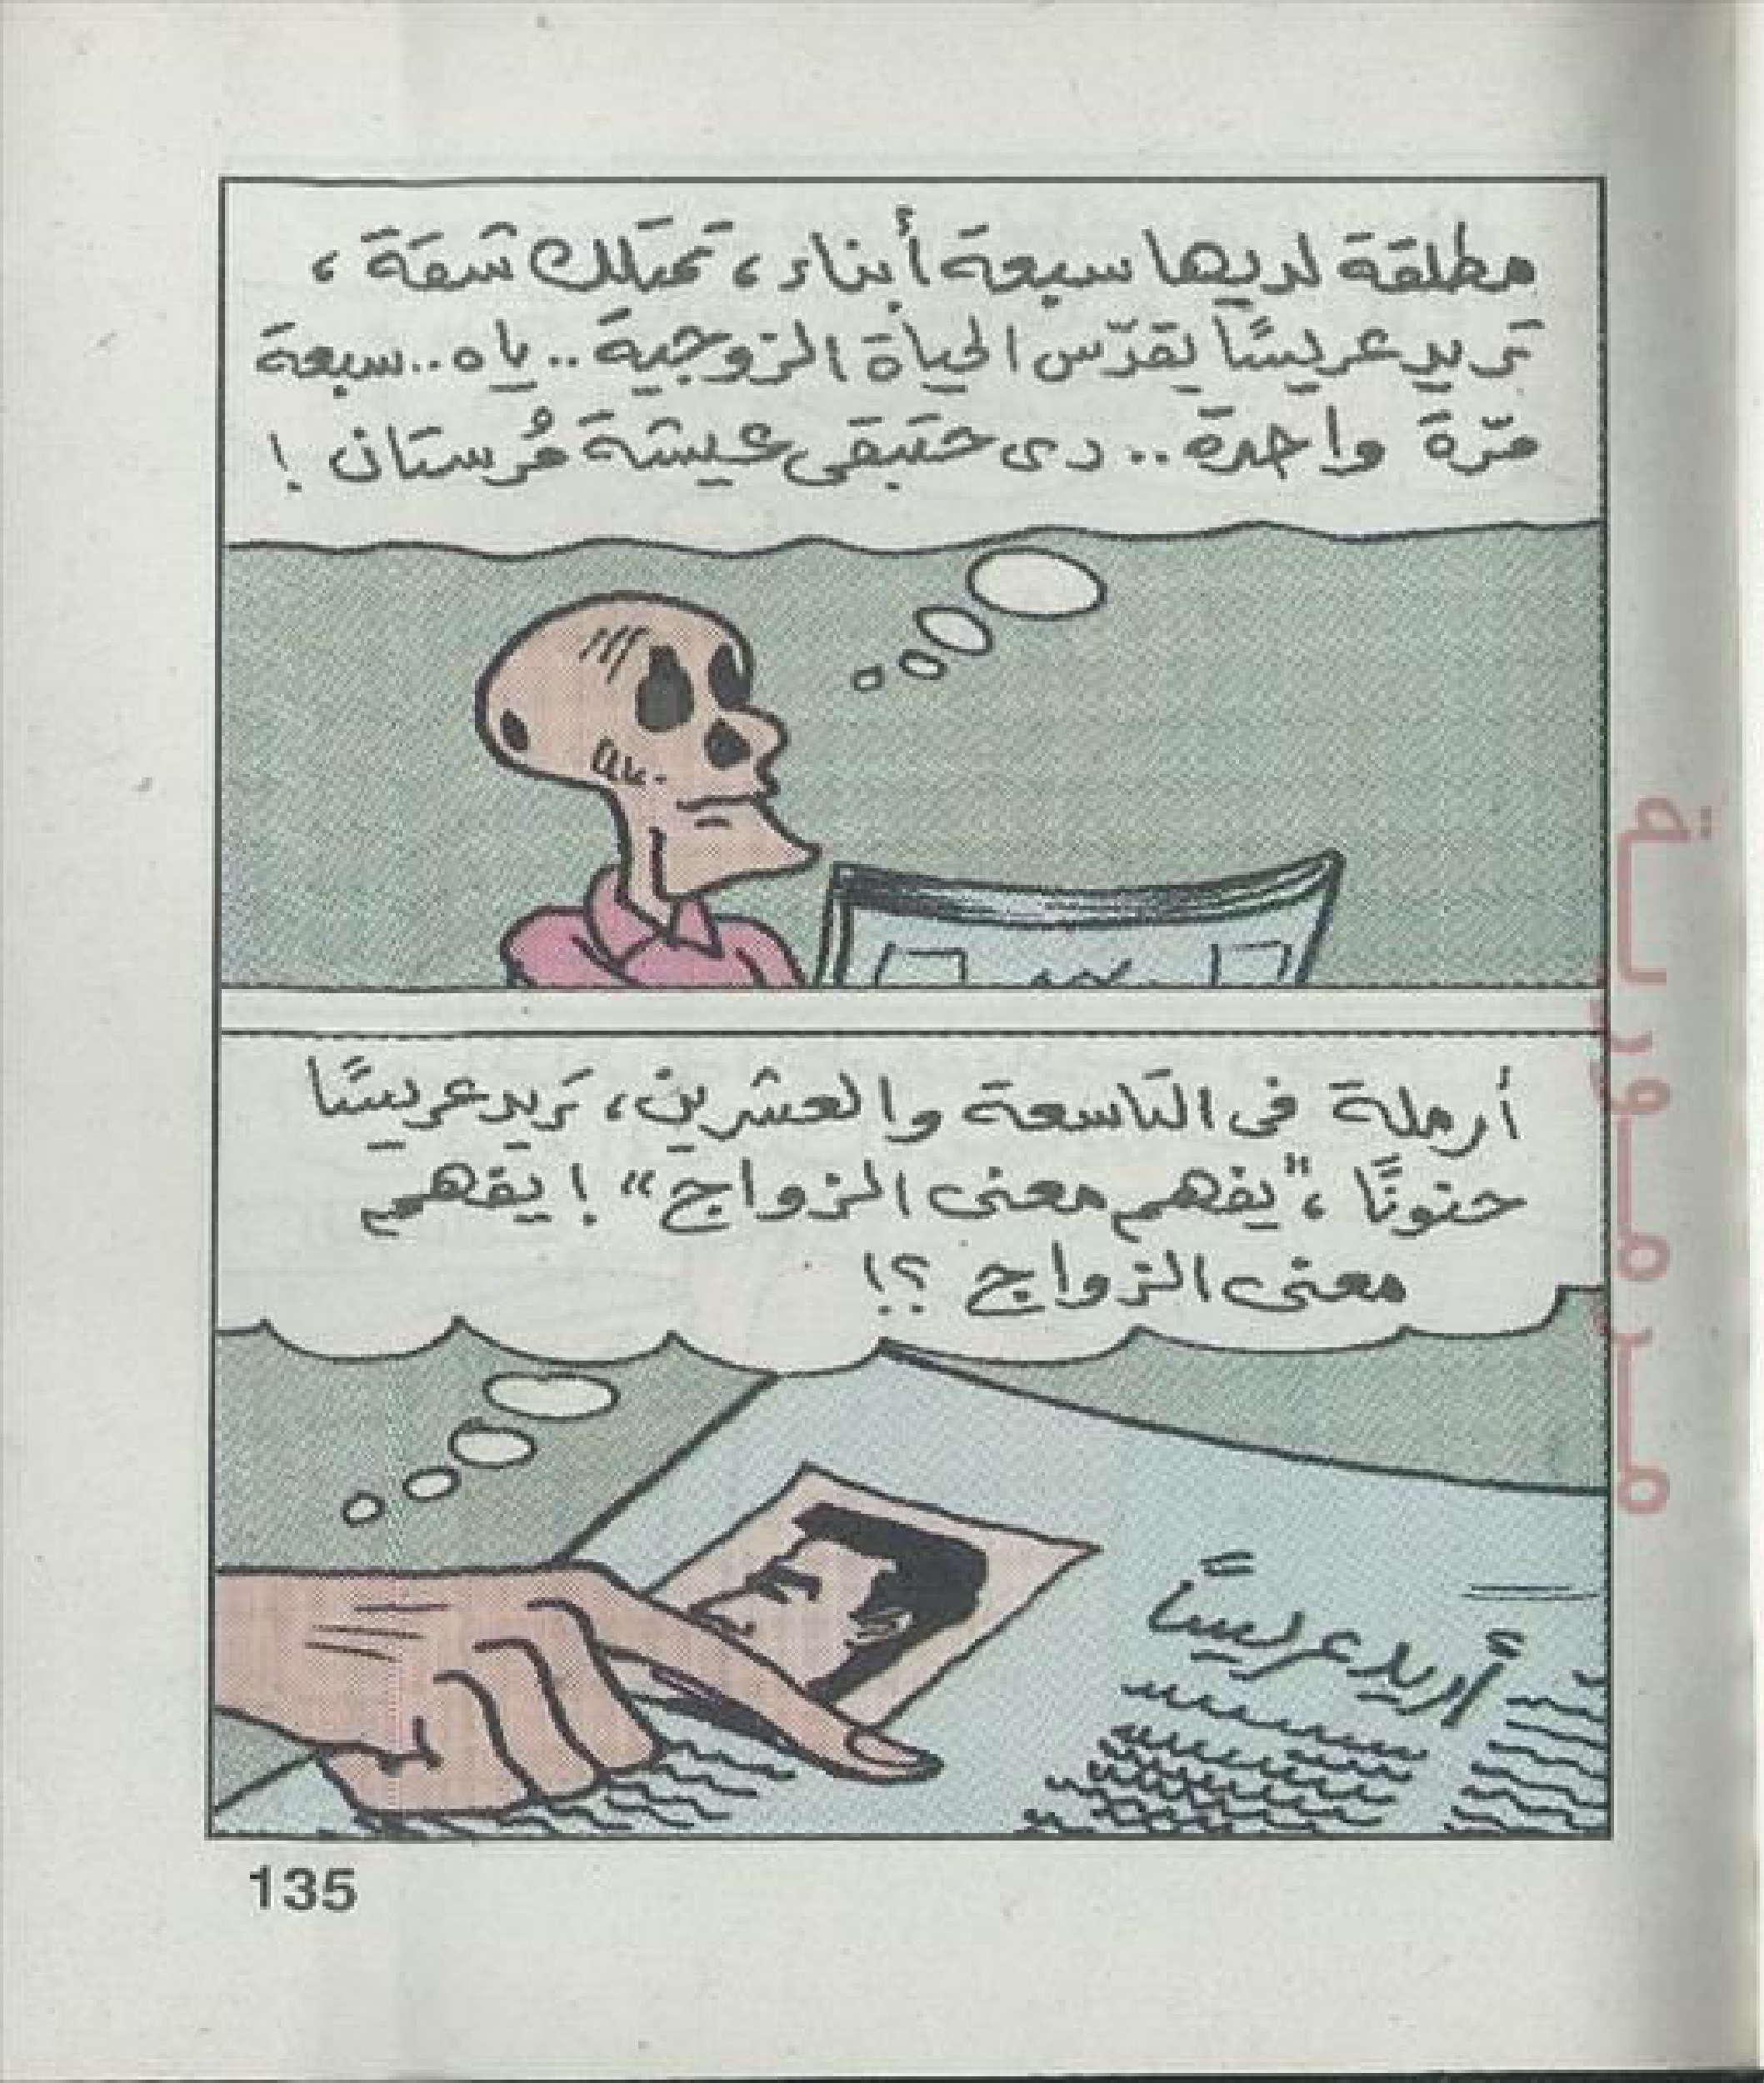 مطلقة لديها سبعة أبناء، تمتلك شقة،
تريد عريسًا يقدّس الحياة الزوجية.. ياه.. سبعة
مرّة واحدة.. دى حتبقى عيشة مُرستان!
أرملة فى التاسعة والعشرين، تريد عريسًا
حنونًا، "يفهم معنى الزواج"! يفهم
معنى الزواج ؟!
أريد عريسًا
135